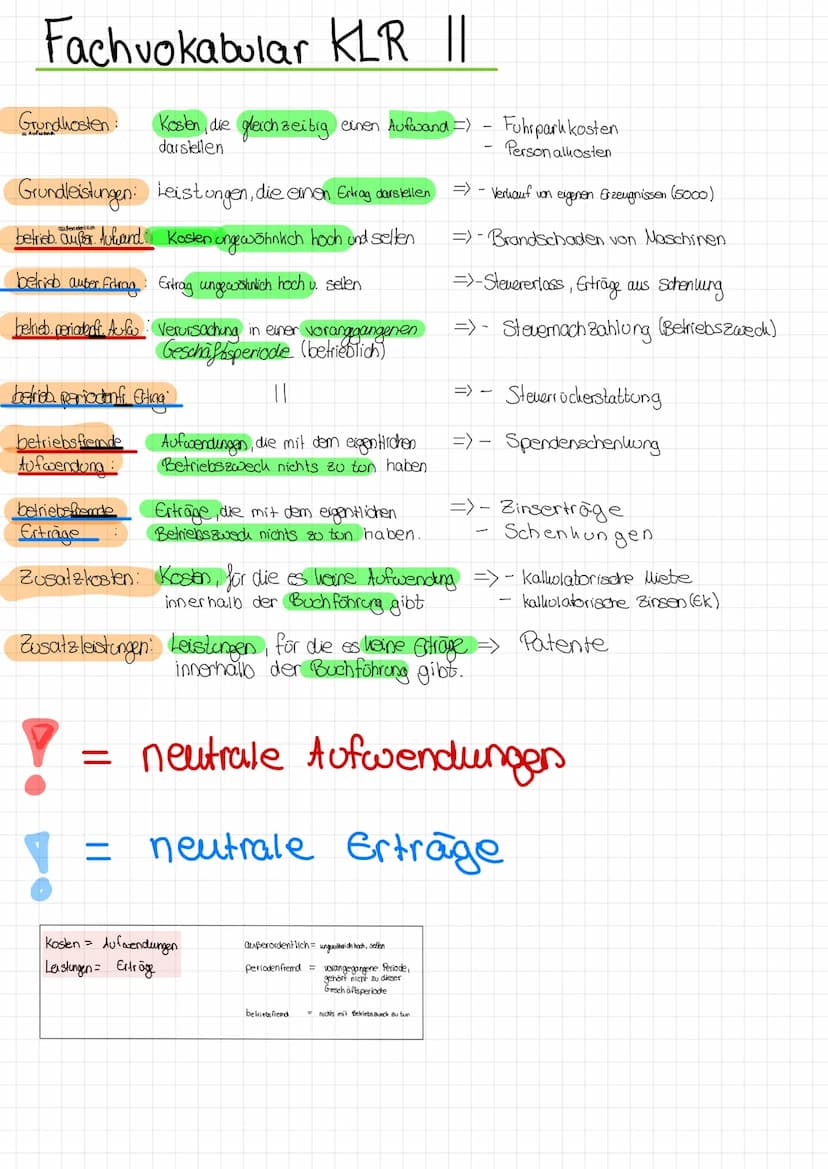 Fachvokabular KLR II
Grundkosten: Kosten, die gleichzeitig einen Aufwand => - Fuhrparkkosten
darstellen - Personalkosten
Grundleistungen: Leistungen, die einen Ertrag darstellen => - Verkauf von eigenen Erzeugnissen (5000)
betrieb. außer. Aufwand: Kosten ungewöhnlich hoch und selten => - Brandschaden von Maschinen
betrieb. außer. Ertrag: Ertrag ungewöhnlich hoch u. selten => - Steuererlass, Erträge aus Schenkung
betrieb. periodenf. Aufw: Verursachung in einer voranggangenen => - Steuernachzahlung (Betriebszweck)
Geschäftsperiode (betrieblich)
betrieb. periodenf. Ertrag: || => - Steuerrückerstattung
betriebsfremde Aufwendungen, die mit dem eigentlichen => - Spendenschenkung
Aufwendung: Betriebszweck nichts zu tun haben
betriebsfremde Erträge, die mit dem eigentlichen => - Zinserträge
Erträge: Betriebszweck nichts zu tun haben. - Schenkungen
Zusatzkosten: Kosten, für die es keine Aufwendung => - kalkulatorische Miete
innerhalb der Buchführung gibt - kalkulatorische Zinsen (EK)
Zusatzleistungen: Leistungen, für die es keine Erträge => Patente
innerhalb der Buchführung gibt.
! = neutrale Aufwendungen
! = neutrale Erträge
Kosten = Aufwendungen außerordentlich = ungewöhnlich hoch, selten
Leistungen = Erträge periodenfremd = vorangegangene Periode,
gehört nicht zu dieser
Geschäftsperiode
betriebsfremd = nichts mit Betriebszweck zu tun